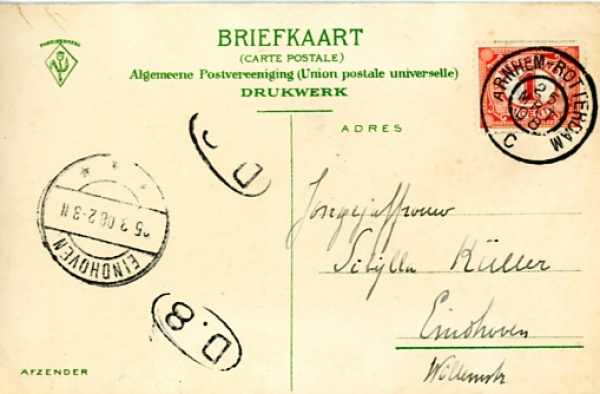 FABRIEKSMERK
BRIEFKAART
(CARTE POSTALE)
Algemeene Postvereeniging (Union postale universelle)
DRUKWERK
ADRES
ARNHEM-ROTTERDAM
C
1
D
25.3.08.2-3 N
EINDHOVEN
D.8
Jongejuffrouw
Sibylla Küller
Eindhoven
Willemstr
AFZENDER